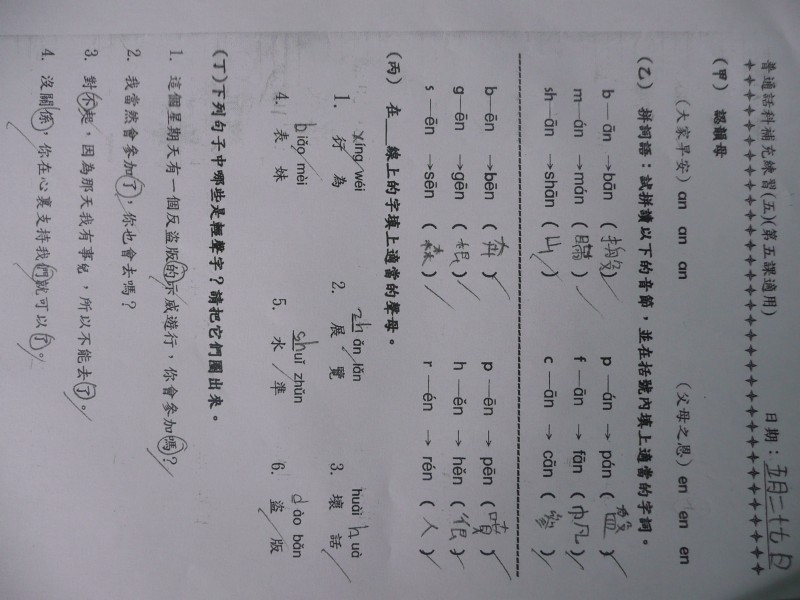 普通話科補充練習(五)(第五課適用) 日期：五月二十九日
(甲) 認韻母
(大家早安) an an an (父母之恩) en en en
(乙) 拼詞語：試拼讀以下的音節，並在括號內填上適當的字詞。
b—ān →bān (搬) p—án → pán (盤)
m—án →mán (瞞) f—ān → fān (帆)
sh—ān →shān (山) c—ān → cān (參)
b—ēn →bēn (奔) p—ēn → pēn (噴)
g—ēn →gēn (根) h—ěn → hěn (很)
s—ēn →sēn (森) r—én → rén (人)
(丙) 在＿線上的字填上適當的聲母。
xíng wéi zhǎn lǎn huài huà
1. 行為 2. 展覽 3. 壞話
biǎo mèi shuǐ zhǔn dào bǎn
4. 表妹 5. 水準 6. 盜版
(丁)下列句子中哪些是輕聲字？請把它們圈出來。
1. 這個星期天有一個反盜版的示威遊行，你會參加嗎？
2. 我當然會參加了，你也會去嗎？
3. 對不起，因為那天我有事兒，所以不能去了。
4. 沒關係，你在心裏支持我們就可以了。